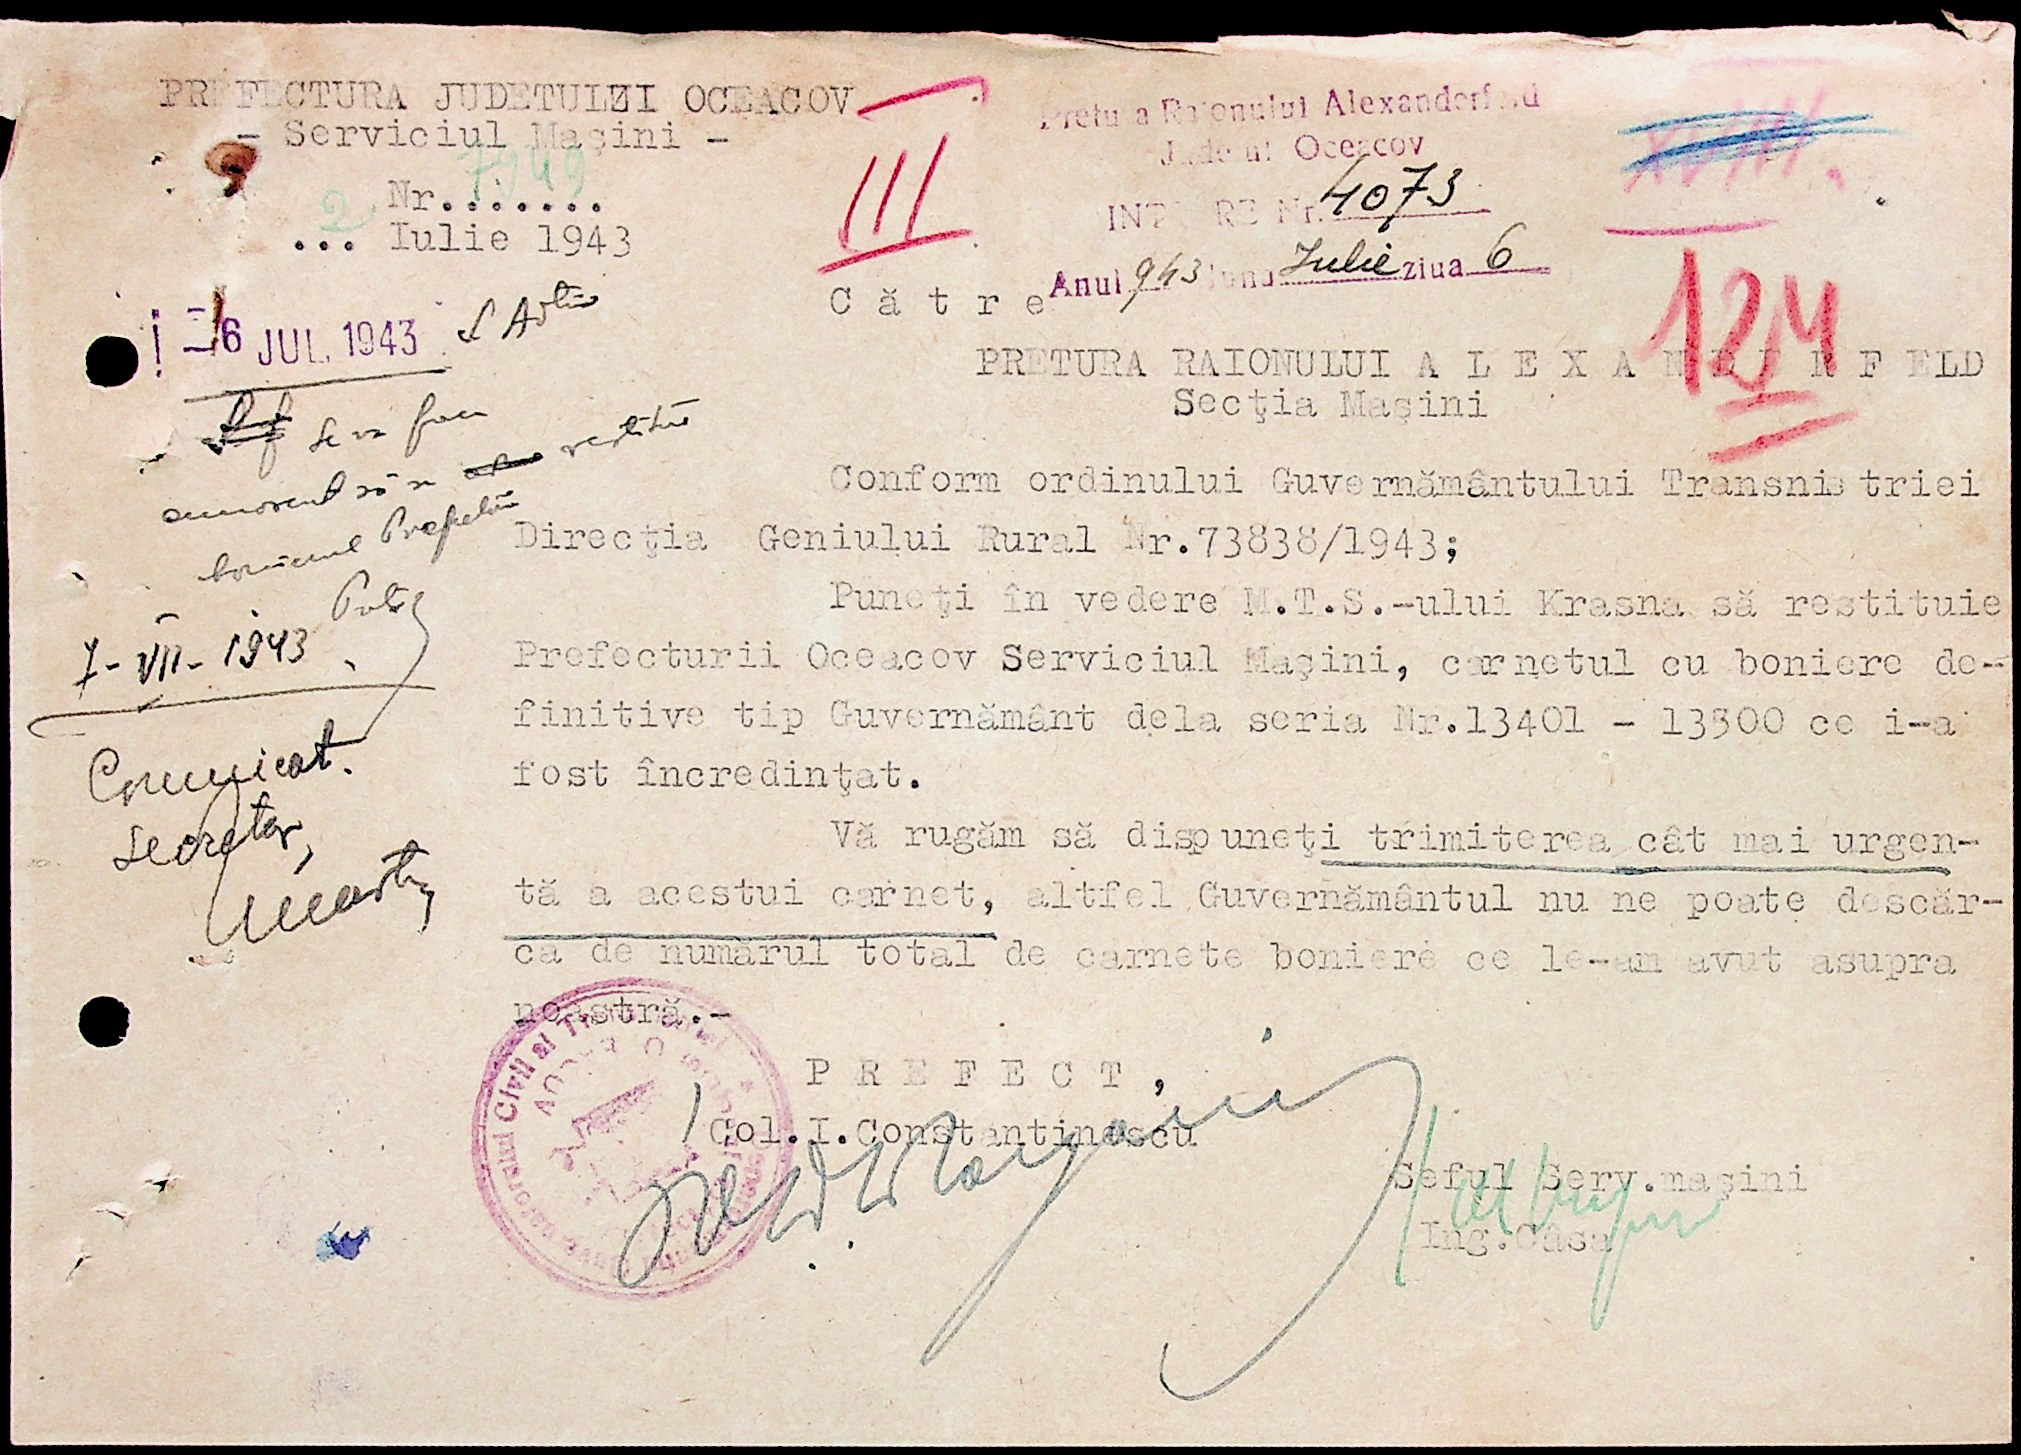 PREFECTURA JUDETULUI OCEACOV
- Serviciul Maşini -
Nr....... 7949
2 ... Iulie 1943
III
Pretura Raionului Alexanderfeld
Judeţul Oceacov
INTRARE Nr. 4073
Anul 943 luna Iulie ziua 6
XVIII.
124
- 6 JUL. 1943
Către
PRETURA RAIONULUI A L E X A N D E R F ELD
Secţia Maşini
se va face
restitui
7-VII-1943
Comunicat.
Secretar,
Conform ordinului Guvernământului Transnistriei
Direcţia Geniului Rural Nr.73838/1943;
Puneţi în vedere M.T.S.-ului Krasna să restituie
Prefecturii Oceacov Serviciul Maşini, carnetul cu boniere de-
finitive tip Guvernământ dela seria Nr.13401 - 13500 ce i-a
fost încredinţat.
Vă rugăm să dispuneţi trimiterea cât mai urgen-
tă a acestui carnet, altfel Guvernământul nu ne poate descăr-
ca de numărul total de carnete boniere ce le-am avut asupra
noastră.-
P R E F E C T ,
Col.I.Constantinescu
Seful Serv.maşini
Ing.Câsa